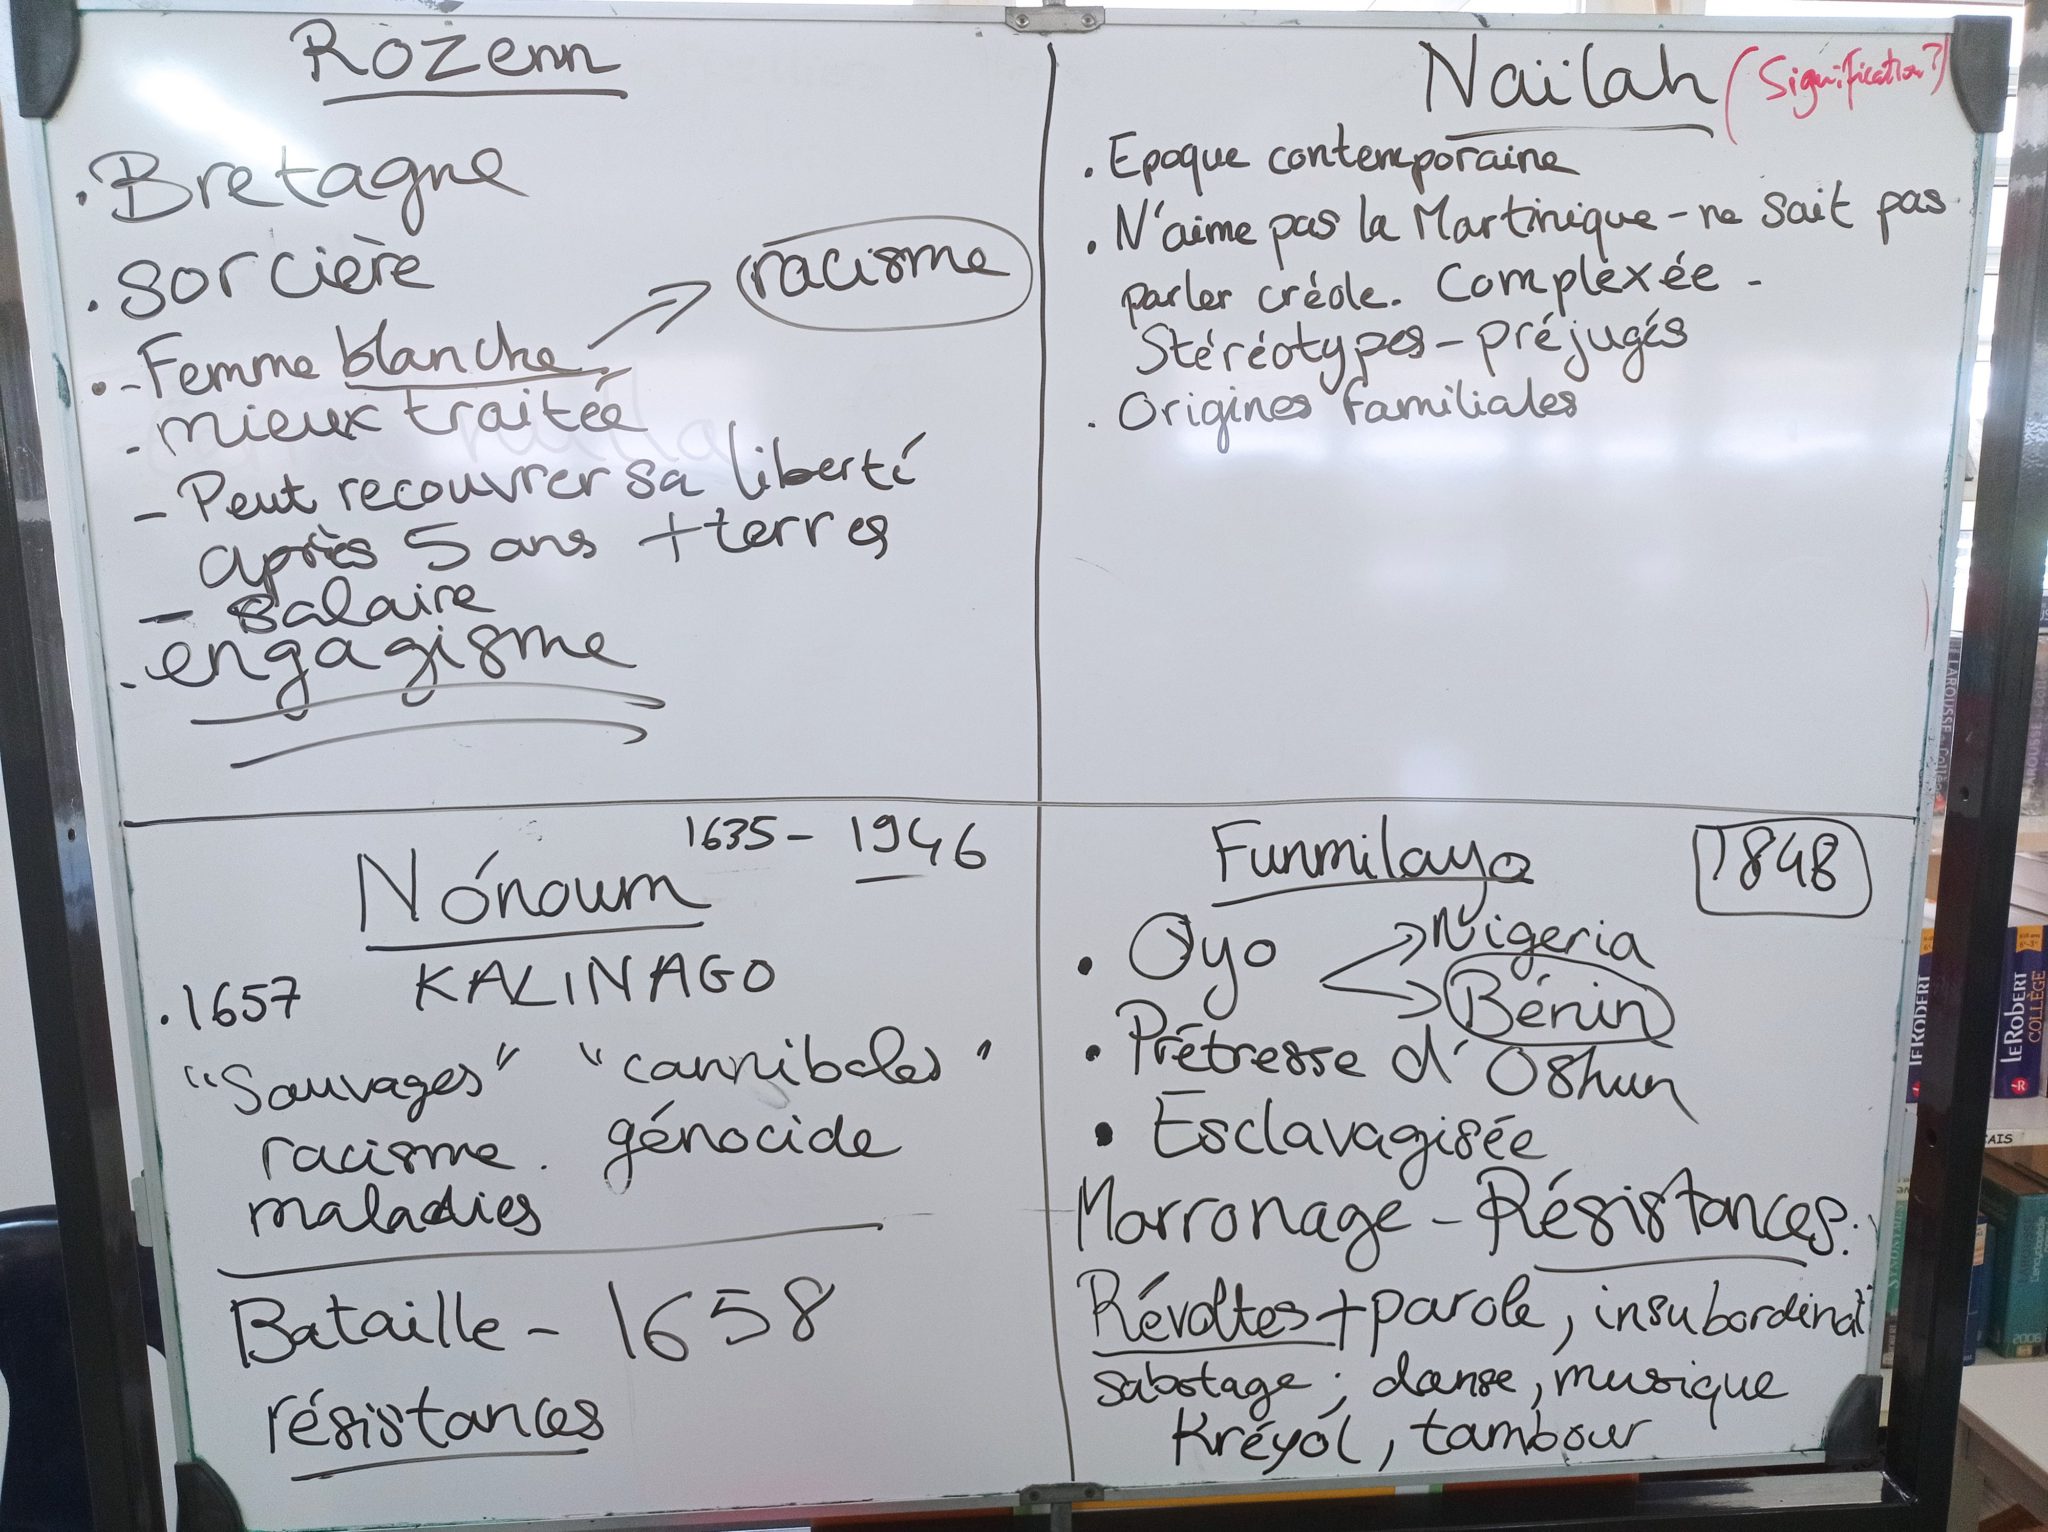 Rozenn
. Bretagne
. sorcière
racisme
. - Femme blanche
- mieux traitée
- Peut recouvrer sa liberté
après 5 ans + terres
- salaire
. engagisme
Naïlah (Signification?)
. Epoque contemporaine
. N'aime pas la Martinique - ne sait pas
parler créole. Complexée -
Stéréotypes - préjugés
. Origines familiales
1635 - 1946
Nónoum
KALINAGO
. 1657
"Sauvages" "cannibales"
racisme. génocide
maladies
Bataille - 1658
résistances
Funmilayo 1848
• Oyo Nigeria
Bénin
• Prêtresse d'Oshun
• Esclavagisée
Marronage - Résistances.
Révoltes + parole, insubordinat°
sabotage ; danse, musique
Kréyól, tambour
LE ROBERT
COLLÈGE
LAROUSSE
2006